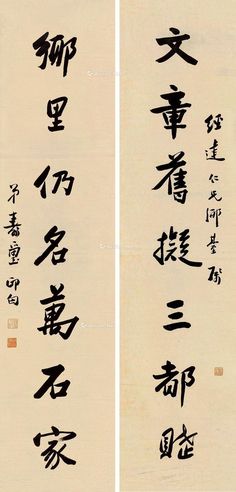 經達仁兄鄉臺屬
文章舊擬三都賦
鄉里仍名萬石家
弟壽璽